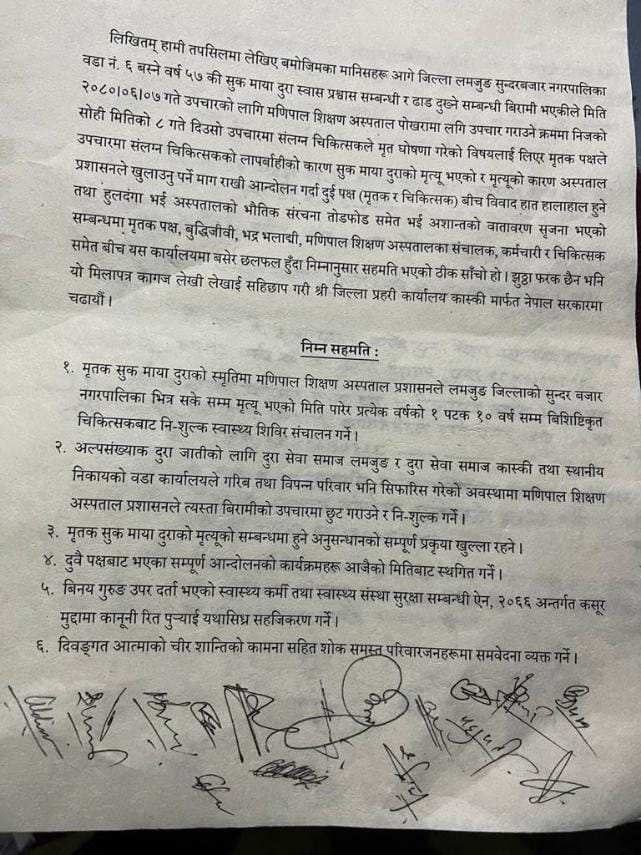 लिखितम् हामी तपसिलमा लेखिए बमोजिमका मानिसहरू आगे जिल्ला लमजुङ सुन्दरबजार नगरपालिका
वडा नं. ६ बस्ने वर्ष ५७ की सुक माया दुरा स्वास प्रश्वास सम्बन्धी र ढाड दुख्ने सम्बन्धी बिरामी भएकीले मिति
२०८०।०६।०७ गते उपचारको लागि मणिपाल शिक्षण अस्पताल पोखरामा लगि उपचार गराउने क्रममा निजको
सोही मितिको ८ गते दिउसो उपचारमा संलग्न चिकित्सकले मृत घोषणा गरेको विषयलाई लिएर मृतक पक्षले
उपचारमा संलग्न चिकित्सकको लापर्वाहीको कारण सुक माया दुराको मृत्यू भएको र मृत्यूको कारण अस्पताल
प्रशासनले खुलाउनु पर्ने माग राखी आन्दोलन गर्दा दुई पक्ष (मृतक र चिकित्सक) बीच विवाद हात हालाहाल हुने
तथा हुलदंगा भई अस्पतालको भौतिक संरचना तोडफोड समेत भई अशान्तको वातावरण सृजना भएको
सम्बन्धमा मृतक पक्ष, बुद्धिजीवी, भद्र भलाद्मी, मणिपाल शिक्षण अस्पतालका संचालक, कर्मचारी र चिकित्सक
समेत बीच यस कार्यालयमा बसेर छलफल हुँदा निम्नानुसार सहमति भएको ठीक साँचो हो। झुठ्ठा फरक छैन भनि
यो मिलापत्र कागज लेखी लेखाई सहिछाप गरी श्री जिल्ला प्रहरी कार्यालय कास्की मार्फत नेपाल सरकारमा
चढायौं।
निम्न सहमति :
१. मृतक सुक माया दुराको स्मृतिमा मणिपाल शिक्षण अस्पताल प्रशासनले लमजुङ जिल्लाको सुन्दर बजार
नगरपालिका भित्र सके सम्म मृत्यू भएको मिति पारेर प्रत्येक वर्षको १ पटक १० वर्ष सम्म बिशिष्टिकृत
चिकित्सकबाट नि-शुल्क स्वास्थ्य शिविर संचालन गर्ने।
२. अल्पसंख्याक दुरा जातीको लागि दुरा सेवा समाज लमजुङ र दुरा सेवा समाज कास्की तथा स्थानीय
निकायको वडा कार्यालयले गरिब तथा विपन्न परिवार भनि सिफारिस गरेको अवस्थामा मणिपाल शिक्षण
अस्पताल प्रशासनले त्यस्ता बिरामीको उपचारमा छुट गराउने र नि-शुल्क गर्ने।
३. मृतक सुक माया दुराको मृत्यूको सम्बन्धमा हुने अनुसन्धानको सम्पूर्ण प्रकृया खुल्ला रहने।
४. दुवै पक्षबाट भएका सम्पूर्ण आन्दोलनको कार्यक्रमहरू आजैको मितिबाट स्थगित गर्ने।
५. बिनय गुरुङ उपर दर्ता भएको स्वास्थ्य कर्मी तथा स्वास्थ्य संस्था सुरक्षा सम्बन्धी ऐन, २०६६ अन्तर्गत कसूर
मुद्दामा कानूनी रित पुऱ्याई यथासिघ्र सहजिकरण गर्ने।
६. दिवङ्गत आत्माको चीर शान्तिको कामना सहित शोक समस्त परिवारजनहरूमा समवेदना व्यक्त गर्ने।